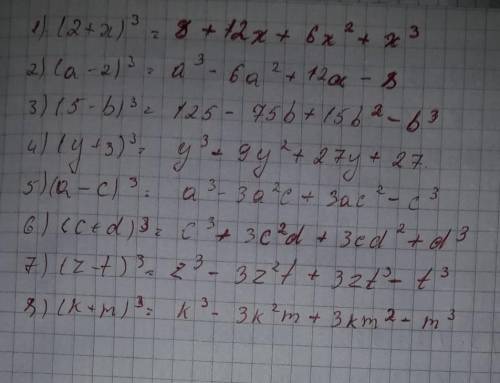 1) (2+x)³ = 8 + 12x + 6x² + x³
2) (a-2)³ = a³ - 6a² + 12a - 8
3) (5-b)³ = 125 - 75b + 15b² - b³
4) (y+3)³ = y³ + 9y² + 27y + 27.
5) (a-c)³ = a³ - 3a²c + 3ac² - c³
6) (c+d)³ = c³ + 3c²d + 3cd² + d³
7) (z-t)³ = z³ - 3z²t + 3zt³ - t³
8) (k+m)³ = k³ - 3k²m + 3km² - m³